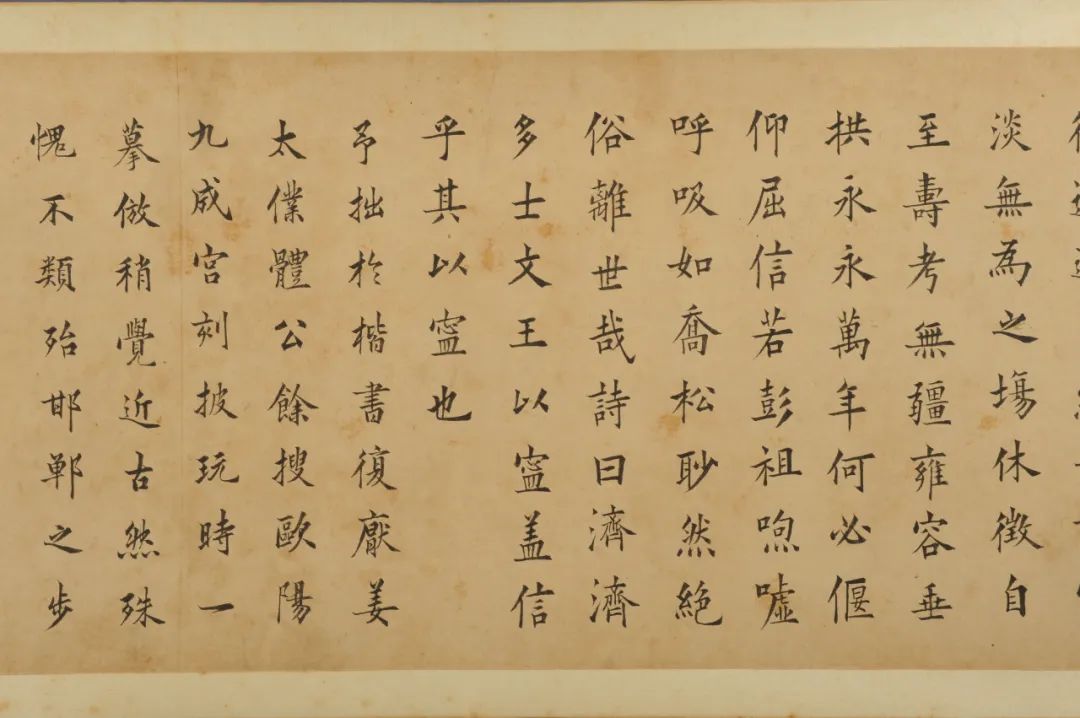 淡無為之塲休徵自
至壽考無疆雍容垂
拱永永萬年何必偃
仰屈信若彭祖喣噓
呼吸如喬松眇然絶
俗離世哉詩曰濟濟
多士文王以寍盖信
乎其以寍也
予拙於楷書復厭姜
太僕體公餘搜歐陽
九成宮刻披玩時一
摹倣稍覺近古然殊
愧不類殆邯鄲之步